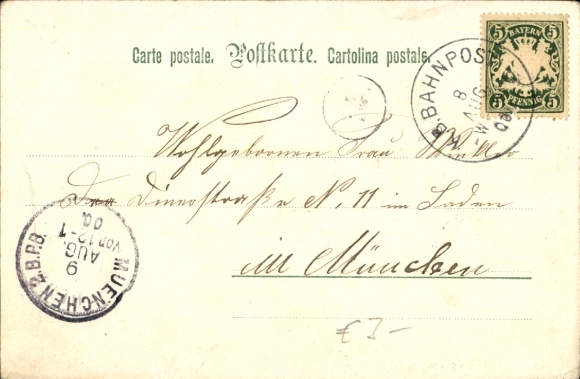 Carte postale. Postkarte. Cartolina postale.
5 BAYERN 5
5 PFENNIG 5
K.B.BAHNPOST
8
AUG
Wohlgebornen Frau Winkler
Dienerstraße N. 11 im Laden
in München
MUENCHEN 2. B.P.B.
9
AUG.
VOR 12-1
00
€ 3-